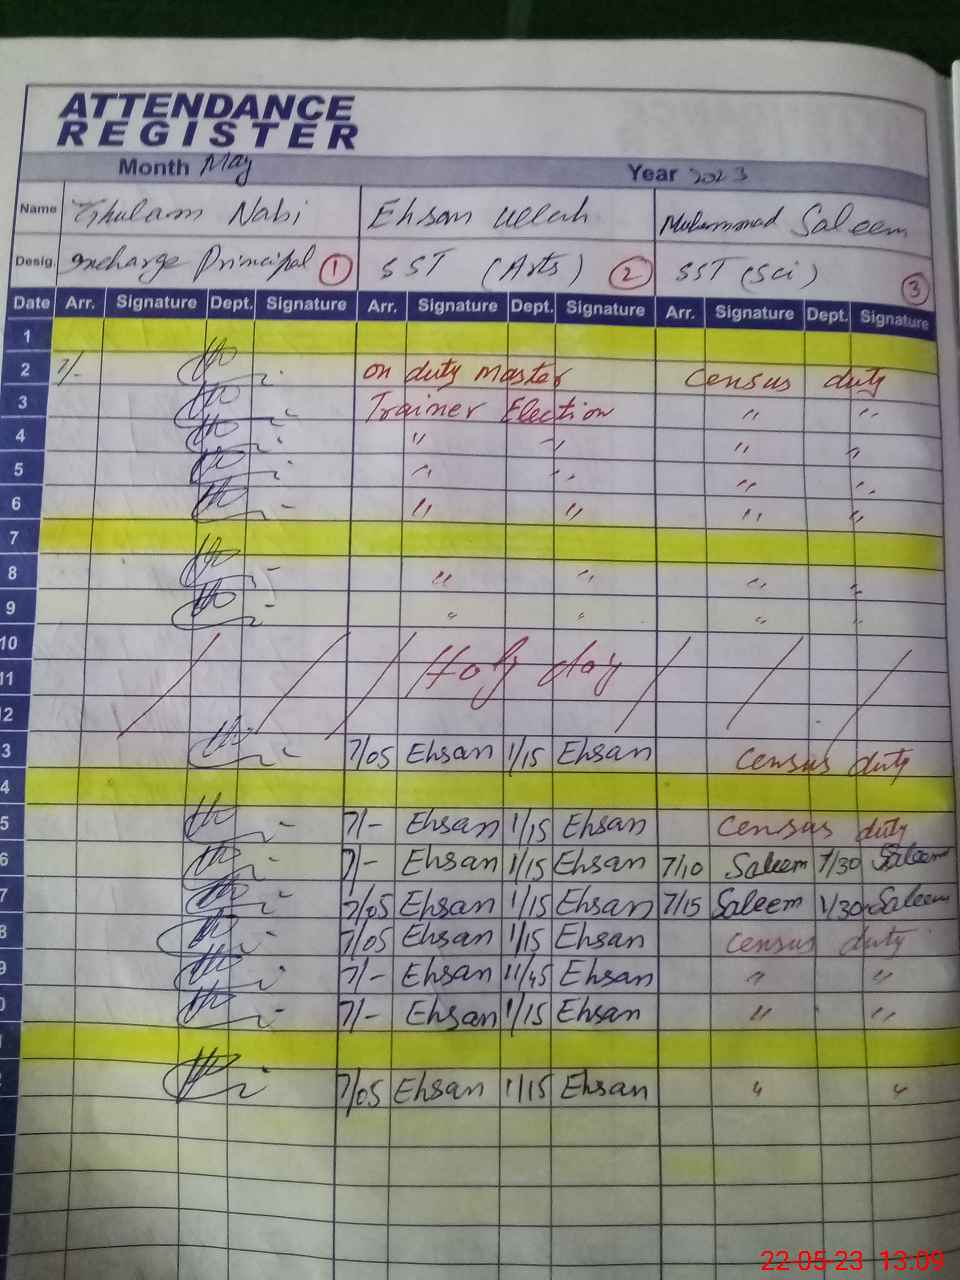 ATTENDANCE
REGISTER
Month May Year 2023
Name Ghulam Nabi Ehsan ullah Muhammad Saleem
Desig. Incharge Principal 1 SST (Arts) 2 SST (Sci) 3
Date Arr. Signature Dept. Signature Arr. Signature Dept. Signature Arr. Signature Dept. Signature
1
2 7/- on duty master Census duty
3 Trainer Election " "
4 " " " "
5 " " " "
6 " " " "
7
8 " " " "
9 " " " "
10
11 Holy day
2
3 7/05 Ehsan 1/15 Ehsan Census duty
4
5 7/- Ehsan 1/15 Ehsan Census duty
6 7/- Ehsan 1/15 Ehsan 7/10 Saleem 1/30 Saleem
7 7/05 Ehsan 1/15 Ehsan 7/15 Saleem 1/30 Saleem
8 7/05 Ehsan 1/15 Ehsan Census duty
9 7/- Ehsan 11/45 Ehsan " "
0 7/- Ehsan 1/15 Ehsan " "
7/05 Ehsan 1/15 Ehsan " "
22-05-23 13:09